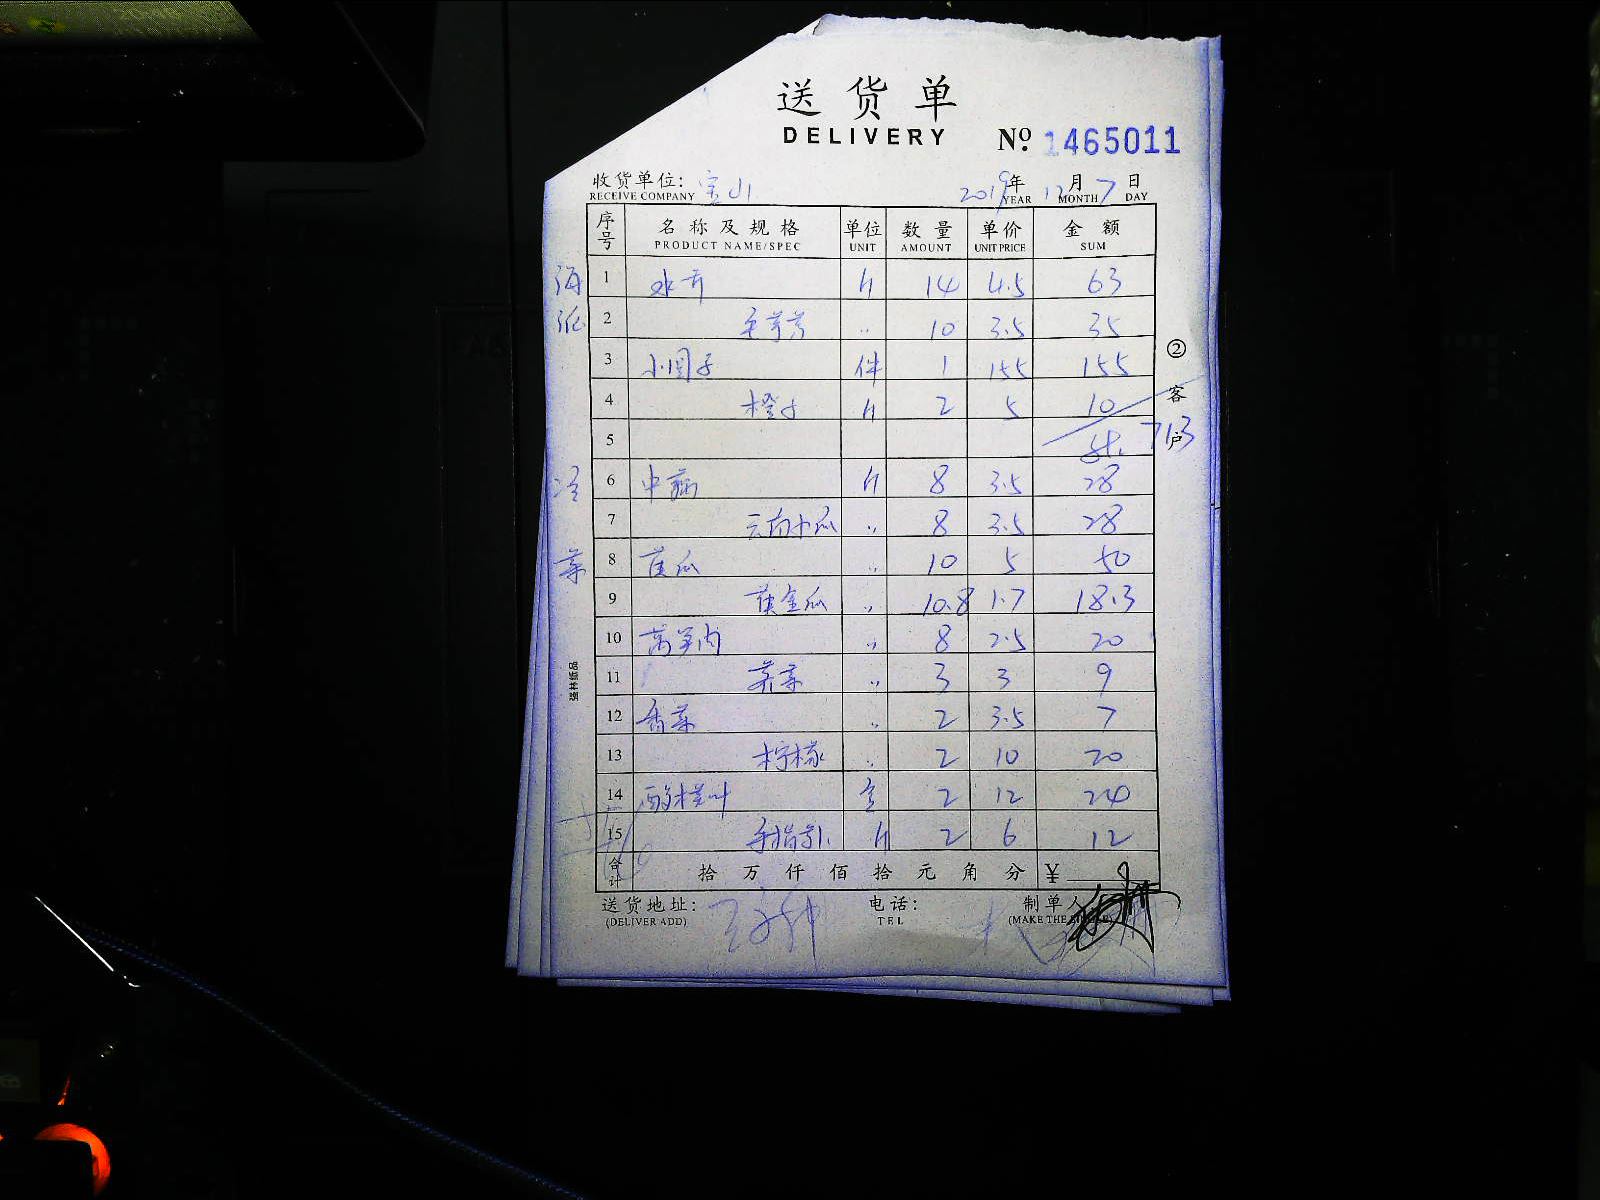 送货单
DELIVERY
№ 1465011
收货单位: 宝山 2019年12月7日
RECEIVE COMPANY YEAR MONTH DAY
序号 名称及规格 单位 数量 单价 金额
PRODUCT NAME/SPEC UNIT AMOUNT UNIT PRICE SUM
1 水 斤 14 4.5 63
2 〃 10 3.5 35
3 小圆子 件 1 155 155
4 橙子 斤 2 5 10
5 713
6 中 斤 8 3.5 28
7 云南小瓜 〃 8 3.5 28
8 黄瓜 〃 10 5 50
9 黄金瓜 〃 10.8 1.7 18.3
10 〃 8 2.5 20
11 〃 3 3 9
12 香菜 〃 2 3.5 7
13 柠檬 〃 2 10 20
14 叶 2 12 24
15 手指 斤 2 6 12
合计 拾 万 仟 佰 拾 元 角 分 ¥
送货地址: 电话: 制单人
(DELIVER ADD) TEL (MAKE THE
② 客户
强林纸品